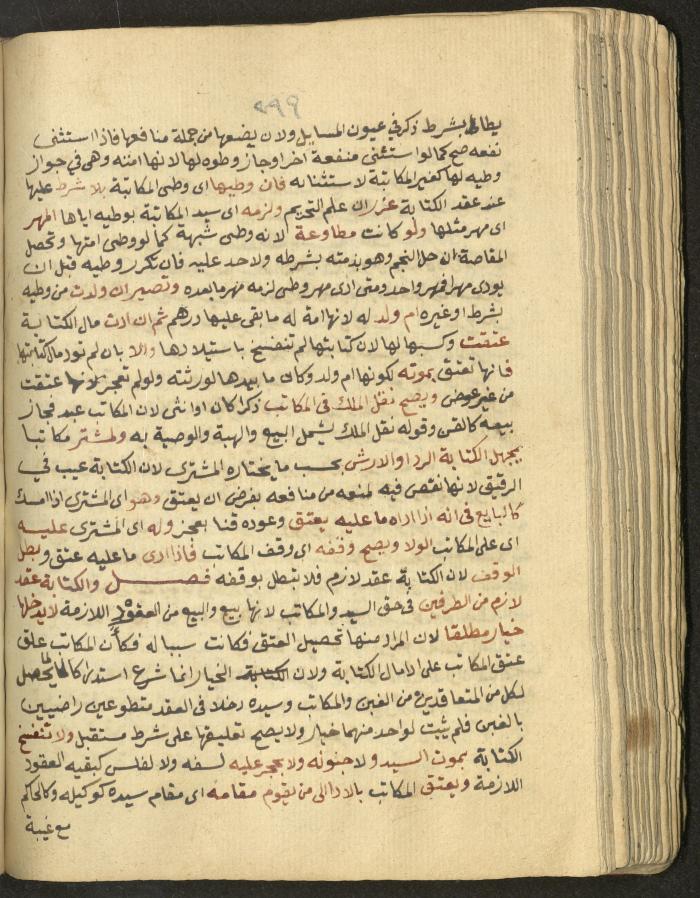 ٢٩٩
يطالها بشرط ذكر في عيون المسايل ولان بضعها من جملة منافعها فاذا استثنى
نفعه صح كما لو استثنى منفعة اخر وجاز وطوه لها لانها امته وهي في جواز
وطيه لها كغير المكاتبة لاستثنائه فان وطيها اي وطي المكاتبة بلا شرط عليها
عند عقد الكتابة عزر ان علم التحريم ولزمه اي سيد المكاتبة بوطيه اياها المهر
اي مهر مثلها ولو كانت مطاوعة لانه وطي شبهة كما لو وطي امتها وتحصل
المقاصة ان حل النجم وهو بذمته بشرطه ولا حد عليه فان تكرر وطيه قبل ان
يودي مهرا فمهر واحد ومتى ادى مهر وطي لزمه مهر ما بعده وتصير ان ولدت من وطيه
بشرط او غيره ام ولد له لانها امة له ما بقي عليها درهم ثم ان ادت مال الكتابة
عتقت وكسبها لها لان كتابتها لم تنفسخ باستيلادها والا بان لم تود مال كتابتها
فانها تعتق بموته لكونها ام ولد وكان ما بيدها لورثته ولو لم تعجز لانها عتقت
من غير عوض ويصح نقل الملك في المكاتب ذكرا كان او انثى لان المكاتب عبد فجاز
بيعه كالقن وقوله نقل الملك يشمل البيع والهبة والوصية به ولمشتر مكاتبا
يجهل الكتابة الرد او الارش بحسب ما يختاره المشتري لان الكتابة عيب في
الرقيق لانها نقص فيه لمنعه من منافعه بفرض ان يعتق وهو اي المشتري اذا امسك
كالبايع في انه اذا اداه ما عليه يعتق وعوده قنا بعجز وله اي المشتري عليه
اي على المكاتب الولا ويصح وقفه اي وقف المكاتب فاذا ادى ما عليه عتق وبطل
الوقف لان الكتابة عقد لازم فلا تبطل بوقفه فصل والكتابة عقد
لازم من الطرفين في حق السيد والمكاتب لانها بيع والبيع من العقود اللازمة لا يدخلها
خيار مطلقا لان المراد منها تحصيل العتق فكانت سببا له فكأن المكاتب علق
عتق المكاتب على اداء مال الكتابة ولان الخيار انما شرع استدراكا لما يحصل
لكل من المتعاقدين من الغبن والمكاتب وسيده دخلا في العقد متطوعين راضيين
بالغبن فلم يثبت لواحد منهما خيار ولا يصح تعليقها على شرط مستقبل ولا تنفسخ
الكتابة بموت السيد ولا جنونه ولا بحجر عليه لسفه ولا لفلس كبقيه العقود
اللازمة ويعتق المكاتب بالادا الى من يقوم مقامه اي مقام سيده كوكيله وكالحاكم
مع غيبة